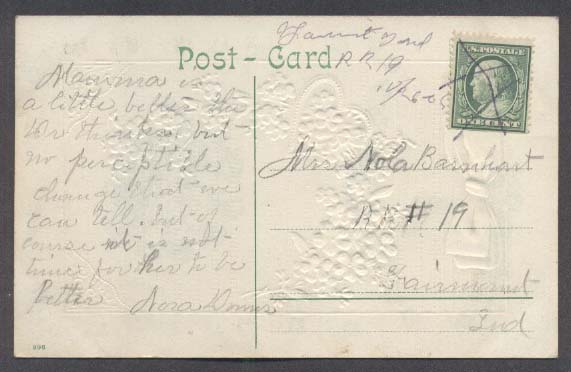 Fairmount Ind
RR 19
Post-Card
U.S. POSTAGE
ONE CENT
Mamma is
a little better the
Dr thinks, but
no perceptible
change that we
can tell. but of
course it is not
time for her to be
better Nora
Mrs Nola Barnhart
RR # 19
Fairmount
Ind